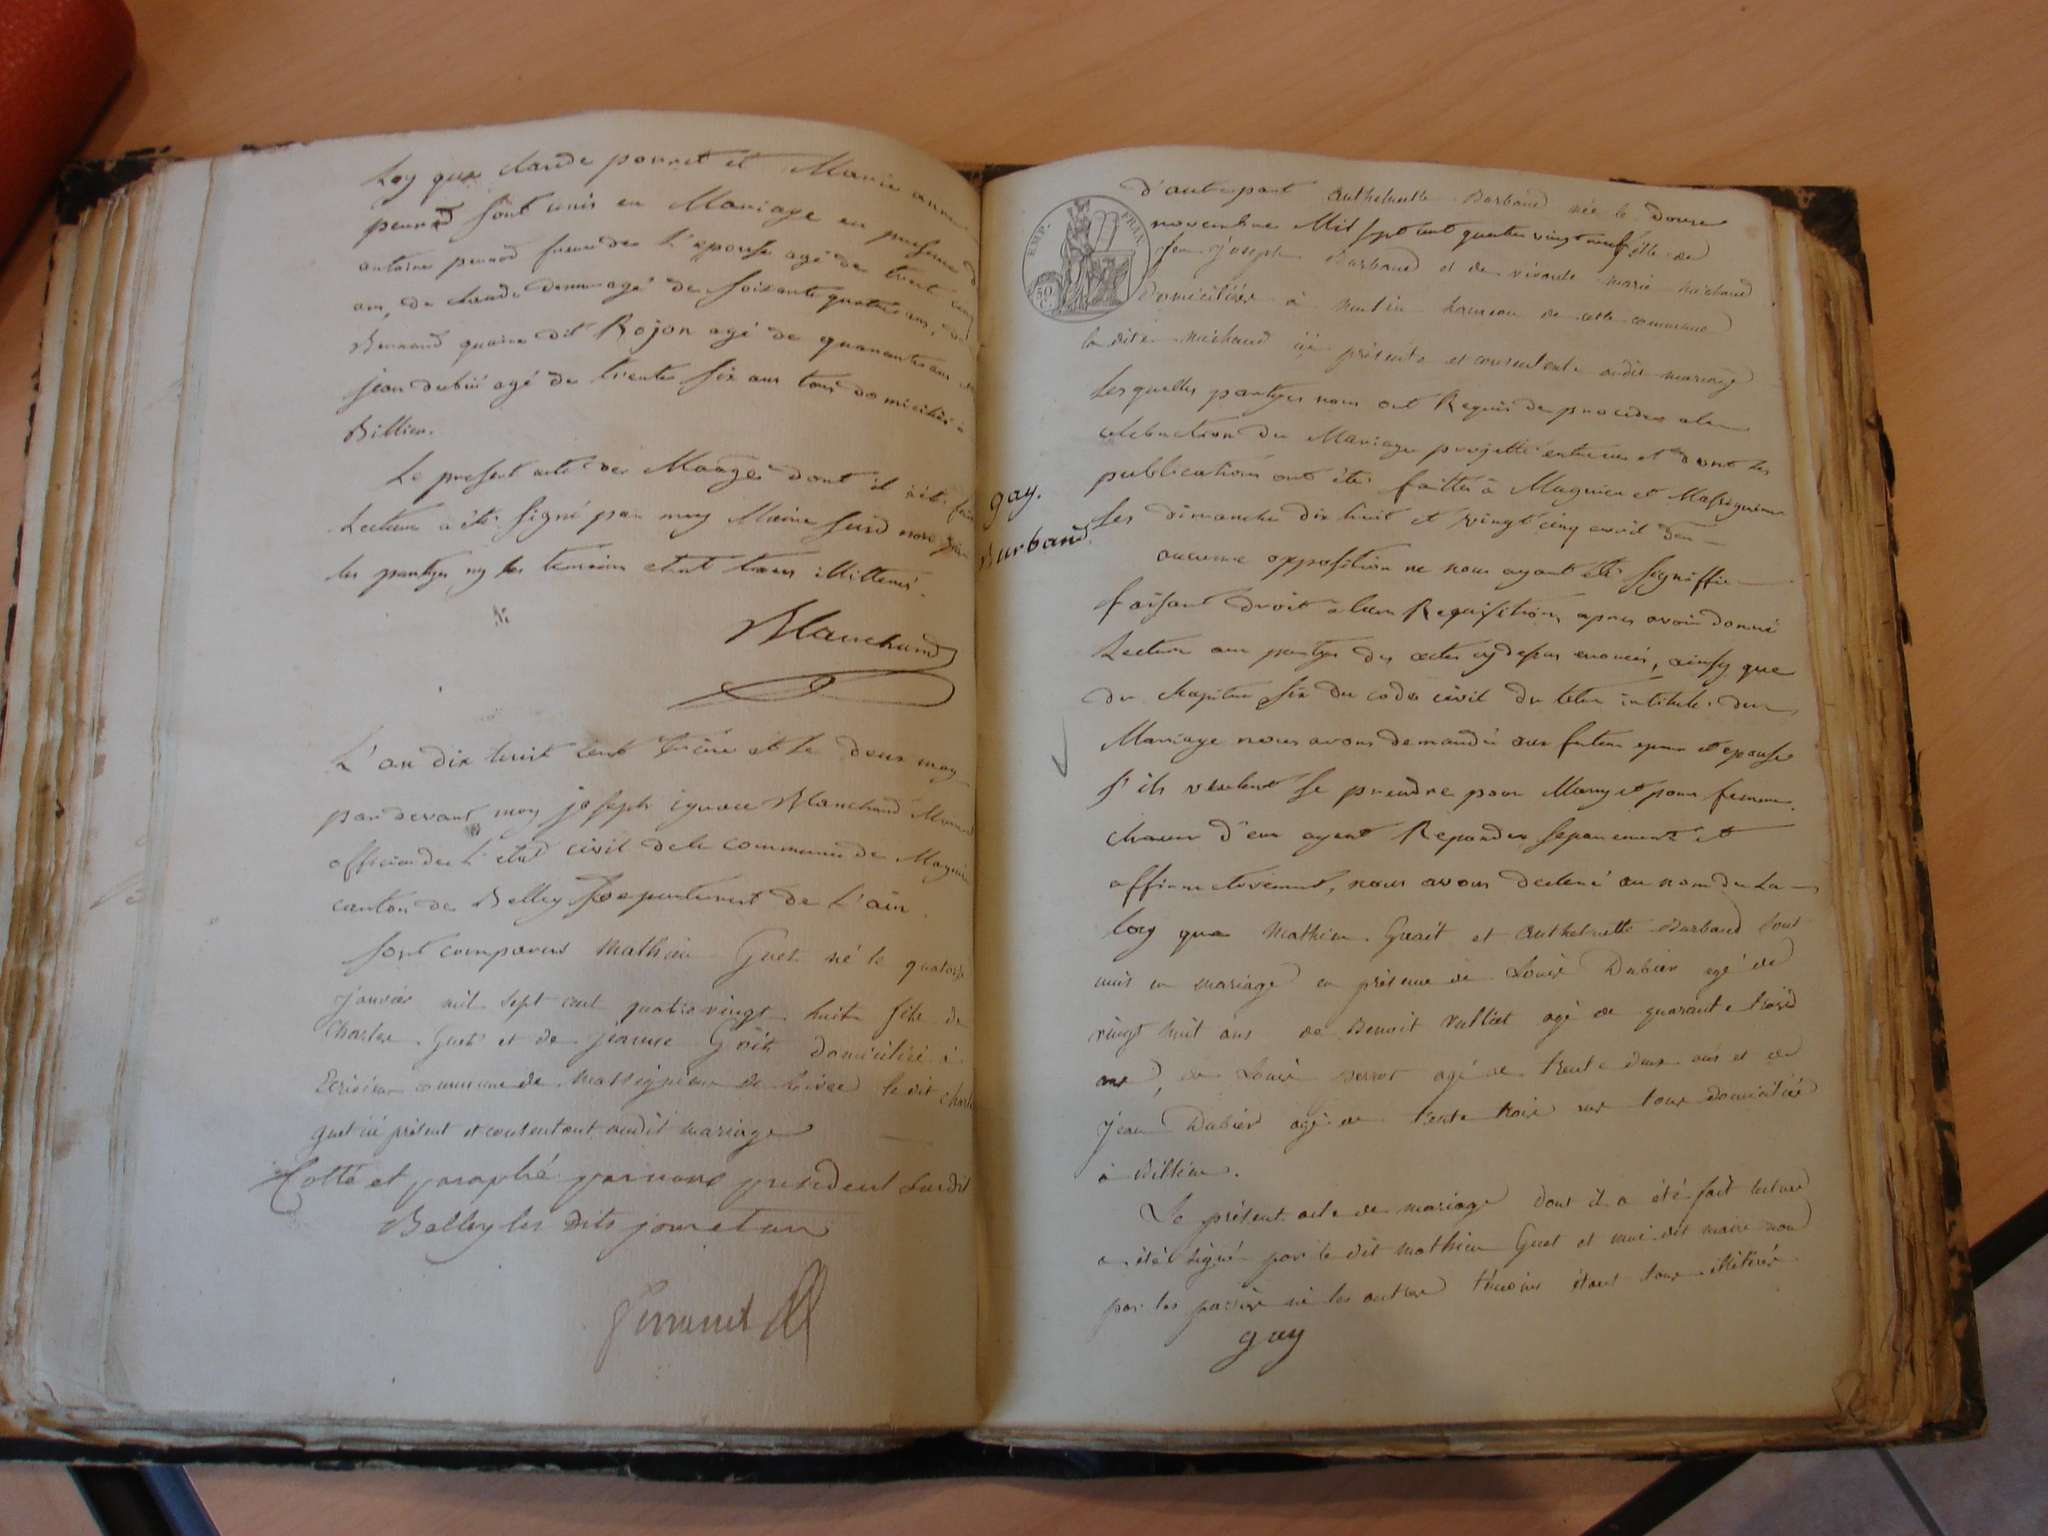 Loy que claude pouret et Marie anne
penard sont unis en Mariage en presence d
antoine penard frere de L'epouse agé de trent cinq
ans, de claude agé de soixante quatre ans, de
Bernard dit Rojon agé de quarante ans
jean dubié agé de trente six ans tous domiciliés a
Billieu.
Le present acte de Mariage dont il a été fait
Lecture a été signé par moy Maire susd non
les partyes ny les temoins etant tous illitteré.
Blanchard
L'an dix huit cent treize et le deux may
par devant moy joseph ignace Blanchard Maire
officier de L'etat civil de la commune de Magnieu
canton de Belley Departement de L'ain.
sont comparus Mathieu Guet né le quatorze
janvier mil sept cent quatre vingt huit fils de
Charles Guet et de jeanne domicilié à
commune de Massignieu de Rives le dit Charle
guet ici présent et consentant audit mariage
Cotté et paraphé par nous president susdit
Belley les dits jour et an
gay.
Burband
EMP. FRAN.
50
d'autre part Anthelmette Burband née le douze
novembre Mil sept cent quatre vingt neuf fille de
feu joseph Burband et de marie michaud
Domiciliés à hameau de cette commune
la dite michaud ici présente et consentente audit mariage
Lesquelles partyes nous ont Requis de proceder a la
celebration du Mariage projetté entre eux et dont les
publications ont été faittes a Magnieu et Massignieu
Les dimanche dix huit et vingt cinq avril d
aucune opposition ne nous ayant été signiffie
faisant droit a leur Requisition, apres avoir donné
Lecture aux partyes des actes cy dessus enoncés, ainsy que
du chapitre six du code civil du titre intitulé du
Mariage nous avons demandé aux futurs epoux et epouse
s'ils veulent se prendre pour Mary et pour femme.
chacun d'eux ayant Repondu separement et
affirmativement, nous avons declaré au nom de La
loy que Mathieu Guet et Anthelmette Burband sont
unis en mariage en présence de Louis Dubier agé de
vingt huit ans de Benoit Valliet agé de quarante trois
ans, de Louis agé de trente deux ans et de
jean Dubier agé de trente trois ans tous domiciliés
à Billieu.
Le présent acte de mariage dont il a été fait lecture
a été signé par le dit Mathieu Guet et moi dit maire non
par les parties ni les autres témoins étant tous illitérés
gay